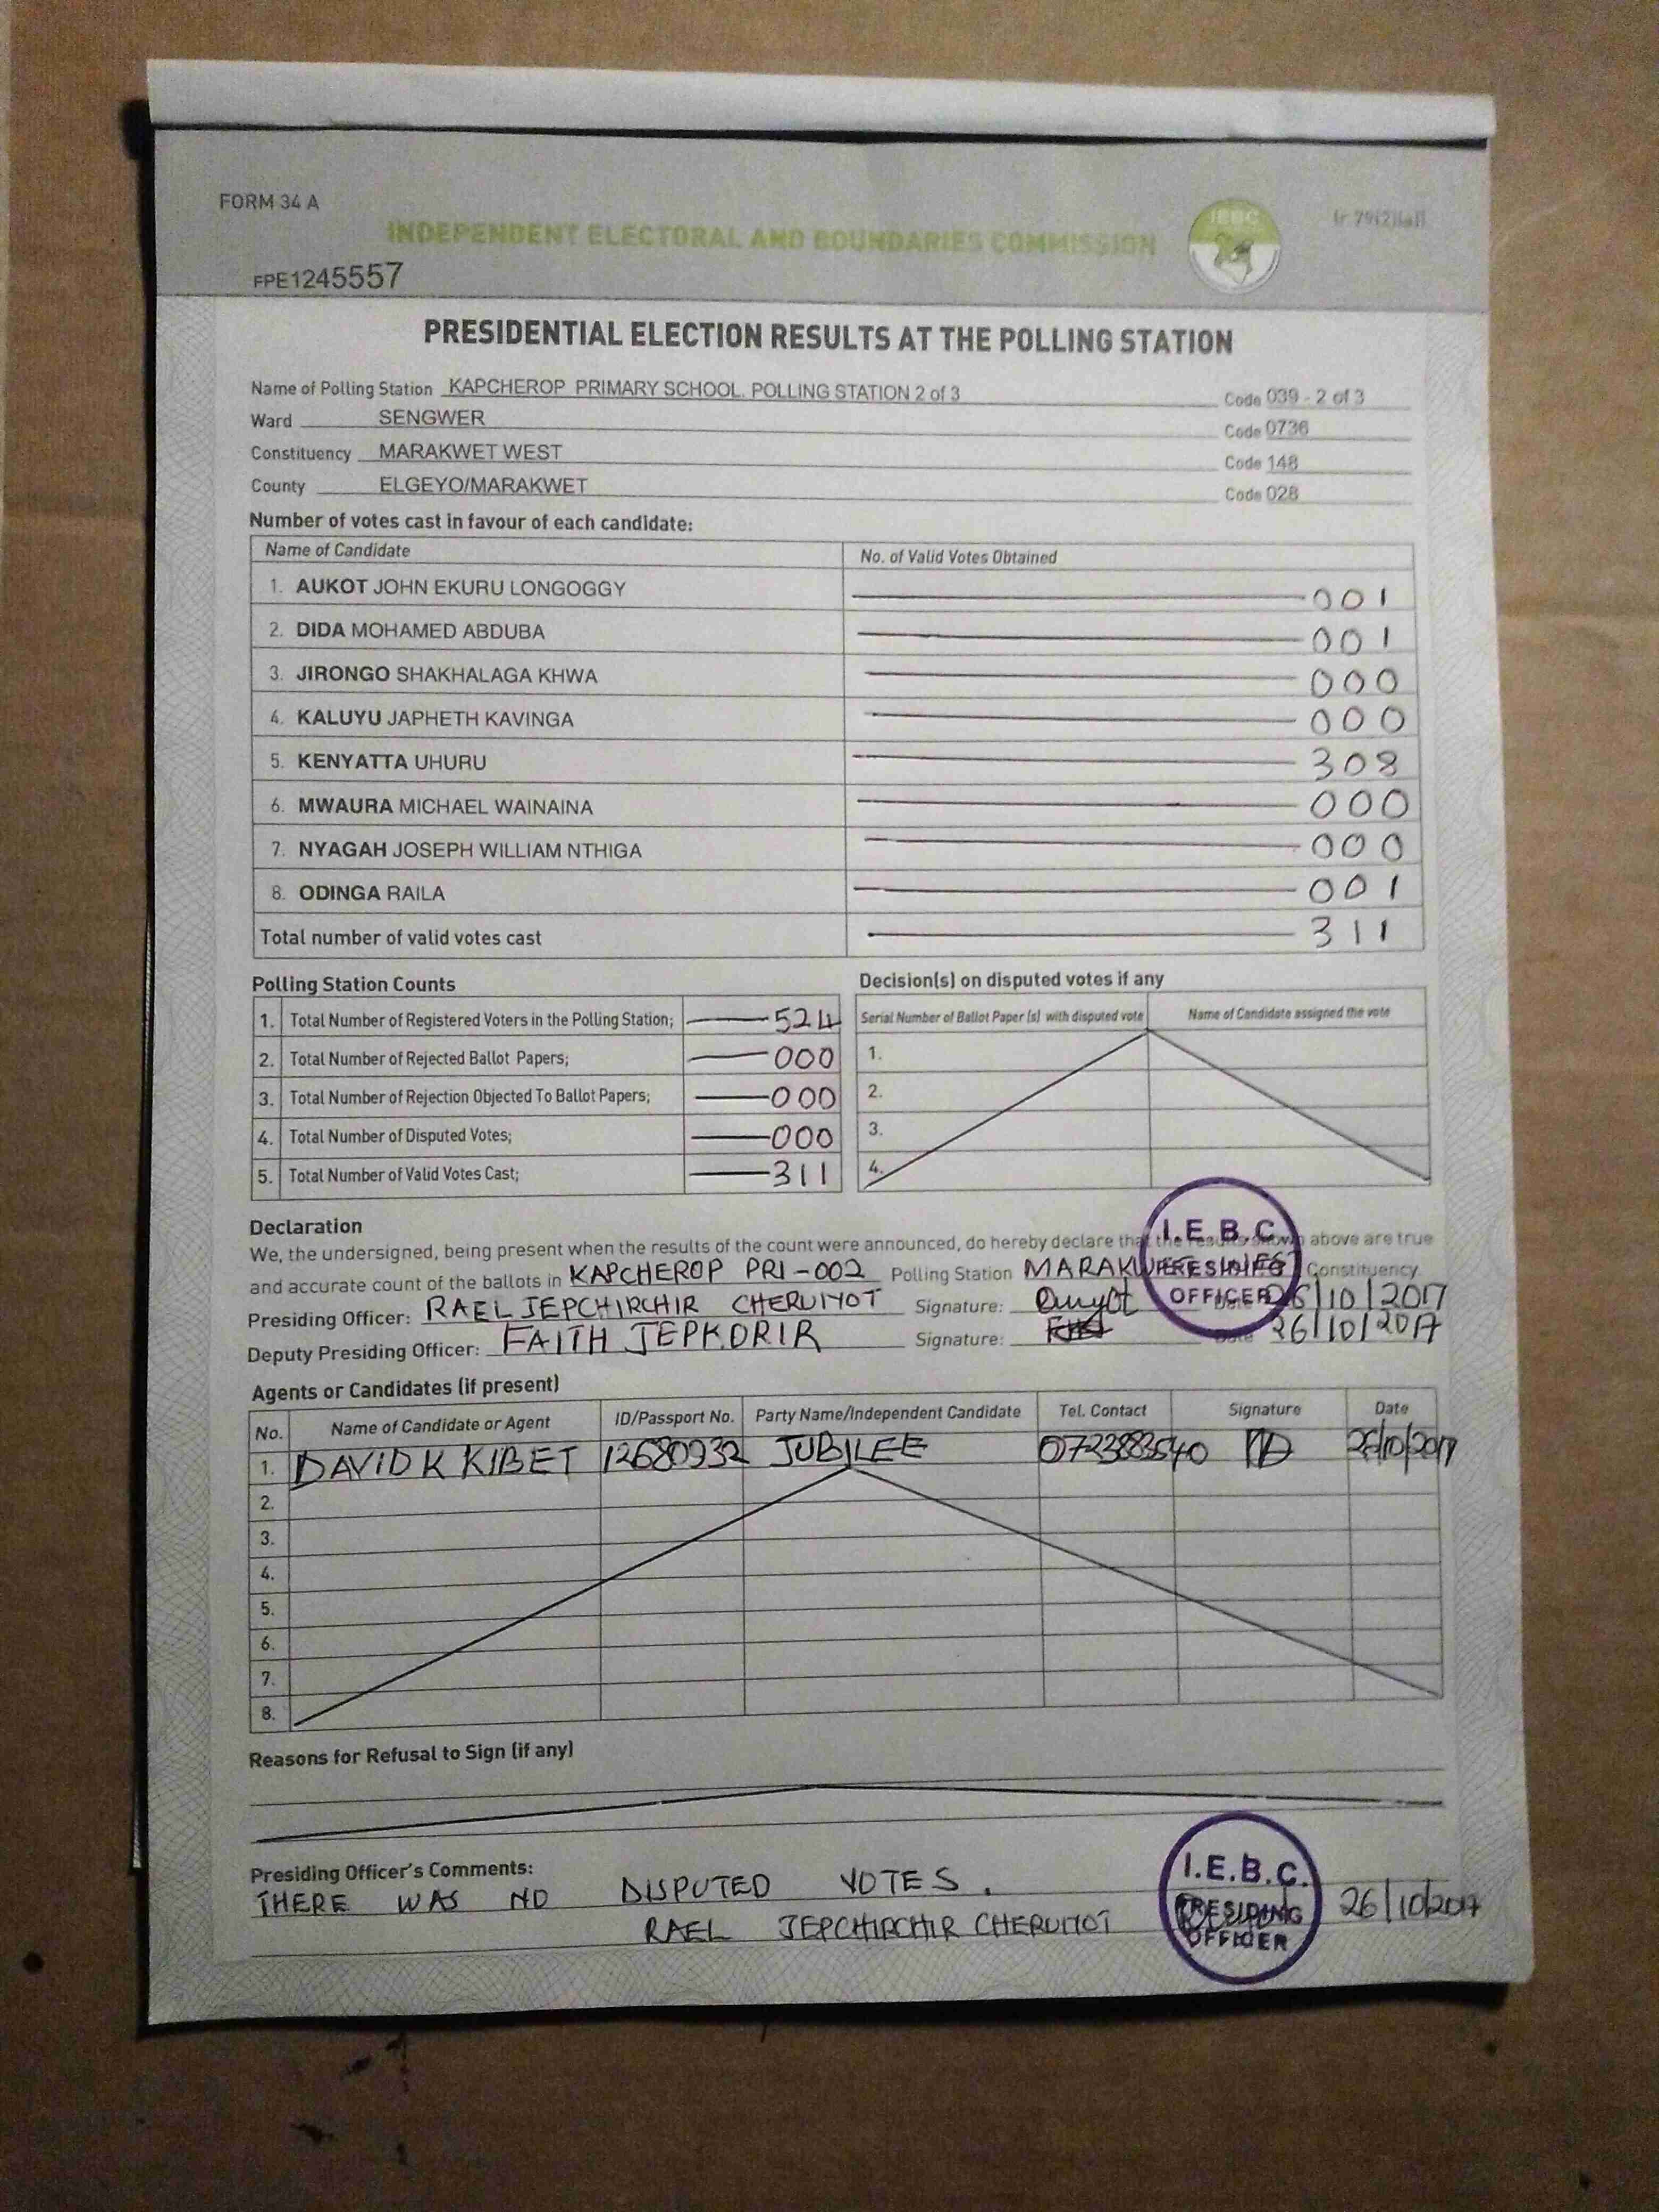 FORM 34 A
(r. 79(2)(a))
INDEPENDENT ELECTORAL AND BOUNDARIES COMMISSION
IEBC
FPE1245557
PRESIDENTIAL ELECTION RESULTS AT THE POLLING STATION
Name of Polling Station KAPCHEROP PRIMARY SCHOOL. POLLING STATION 2 of 3 Code 039 - 2 of 3
Ward SENGWER Code 0736
Constituency MARAKWET WEST Code 148
County ELGEYO/MARAKWET Code 028
Number of votes cast in favour of each candidate:
Name of Candidate No. of Valid Votes Obtained
1. AUKOT JOHN EKURU LONGOGGY 001
2. DIDA MOHAMED ABDUBA 001
3. JIRONGO SHAKHALAGA KHWA 000
4. KALUYU JAPHETH KAVINGA 000
5. KENYATTA UHURU 308
6. MWAURA MICHAEL WAINAINA 000
7. NYAGAH JOSEPH WILLIAM NTHIGA 000
8. ODINGA RAILA 001
Total number of valid votes cast 311
Polling Station Counts
1. Total Number of Registered Voters in the Polling Station; 524
2. Total Number of Rejected Ballot Papers; 000
3. Total Number of Rejection Objected To Ballot Papers; 000
4. Total Number of Disputed Votes; 000
5. Total Number of Valid Votes Cast; 311
Decision(s) on disputed votes if any
Serial Number of Ballot Paper (s) with disputed vote Name of Candidate assigned the vote
1.
2.
3.
4.
Declaration
We, the undersigned, being present when the results of the count were announced, do hereby declare that the results shown above are true
and accurate count of the ballots in KAPCHEROP PRI-002 Polling Station MARAKWET WEST Constituency
Presiding Officer: RAEL JEPCHIRCHIR CHERUIYOT Signature: Date 26/10/2017
Deputy Presiding Officer: FAITH JEPKORIR Signature: Date 26/10/2017
I.E.B.C
PRESIDING
OFFICER
Agents or Candidates (if present)
No. Name of Candidate or Agent ID/Passport No. Party Name/Independent Candidate Tel. Contact Signature Date
1. DAVID K KIBET 12680932 JUBILEE 26/10/2017
2.
3.
4.
5.
6.
7.
8.
Reasons for Refusal to Sign (if any)
Presiding Officer's Comments:
THERE WAS NO DISPUTED VOTES.
RAEL JEPCHIRCHIR CHERUIYOT 26/10/2017
I.E.B.C.
PRESIDING
OFFICER